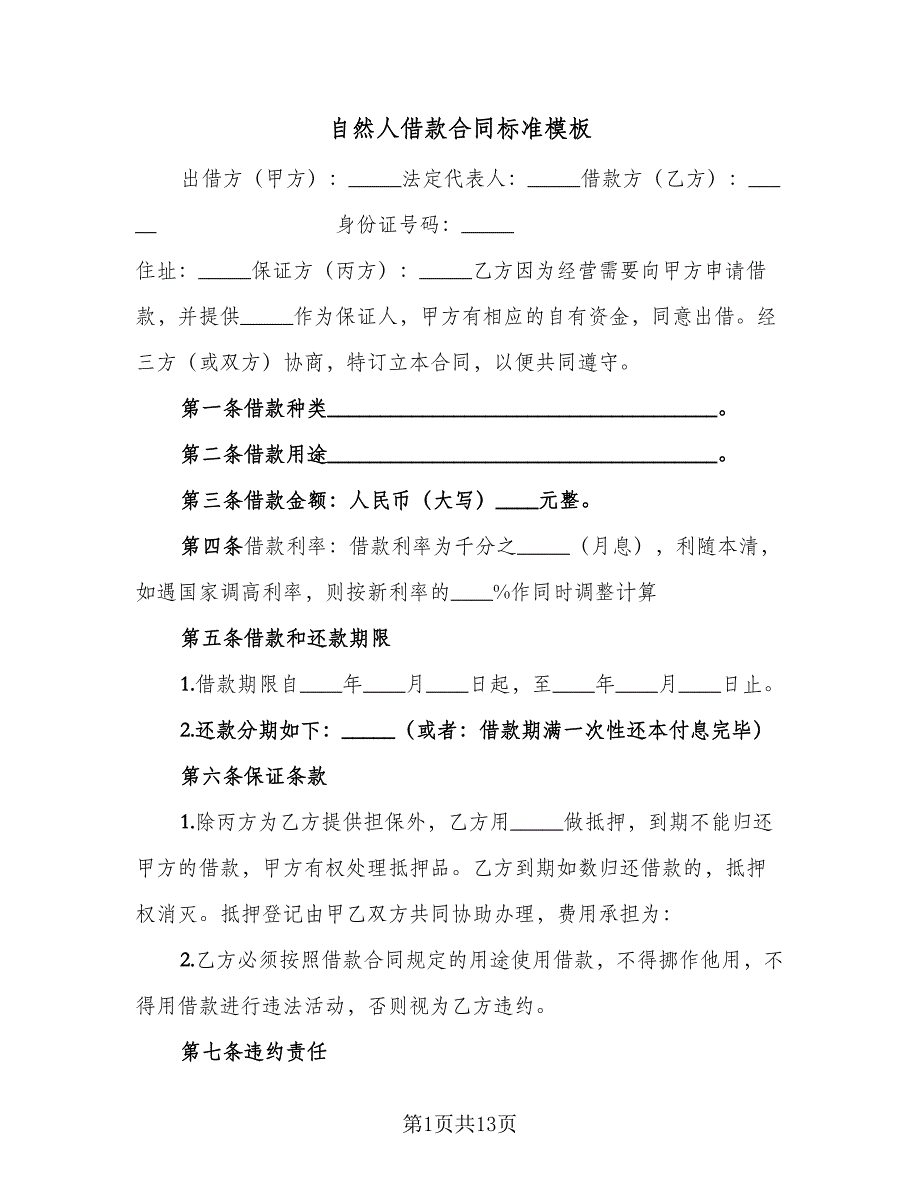 自然人借款合同标准模板
出借方（甲方）：_____法定代表人：_____借款方（乙方）：___
__ 身份证号码：_____
住址：_____保证方（丙方）：_____乙方因为经营需要向甲方申请借
款，并提供_____作为保证人，甲方有相应的自有资金，同意出借。经
三方（或双方）协商，特订立本合同，以便共同遵守。
第一条借款种类_____________________________________。
第二条借款用途_____________________________________。
第三条借款金额：人民币（大写）____元整。
第四条借款利率：借款利率为千分之_____（月息），利随本清，
如遇国家调高利率，则按新利率的____%作同时调整计算
第五条借款和还款期限
1.借款期限自____年____月____日起，至____年____月____日止。
2.还款分期如下：_____（或者：借款期满一次性还本付息完毕）
第六条保证条款
1.除丙方为乙方提供担保外，乙方用_____做抵押，到期不能归还
甲方的借款，甲方有权处理抵押品。乙方到期如数归还借款的，抵押
权消灭。抵押登记由甲乙双方共同协助办理，费用承担为：
2.乙方必须按照借款合同规定的用途使用借款，不得挪作他用，不
得用借款进行违法活动，否则视为乙方违约。
第七条违约责任
第1页共13页